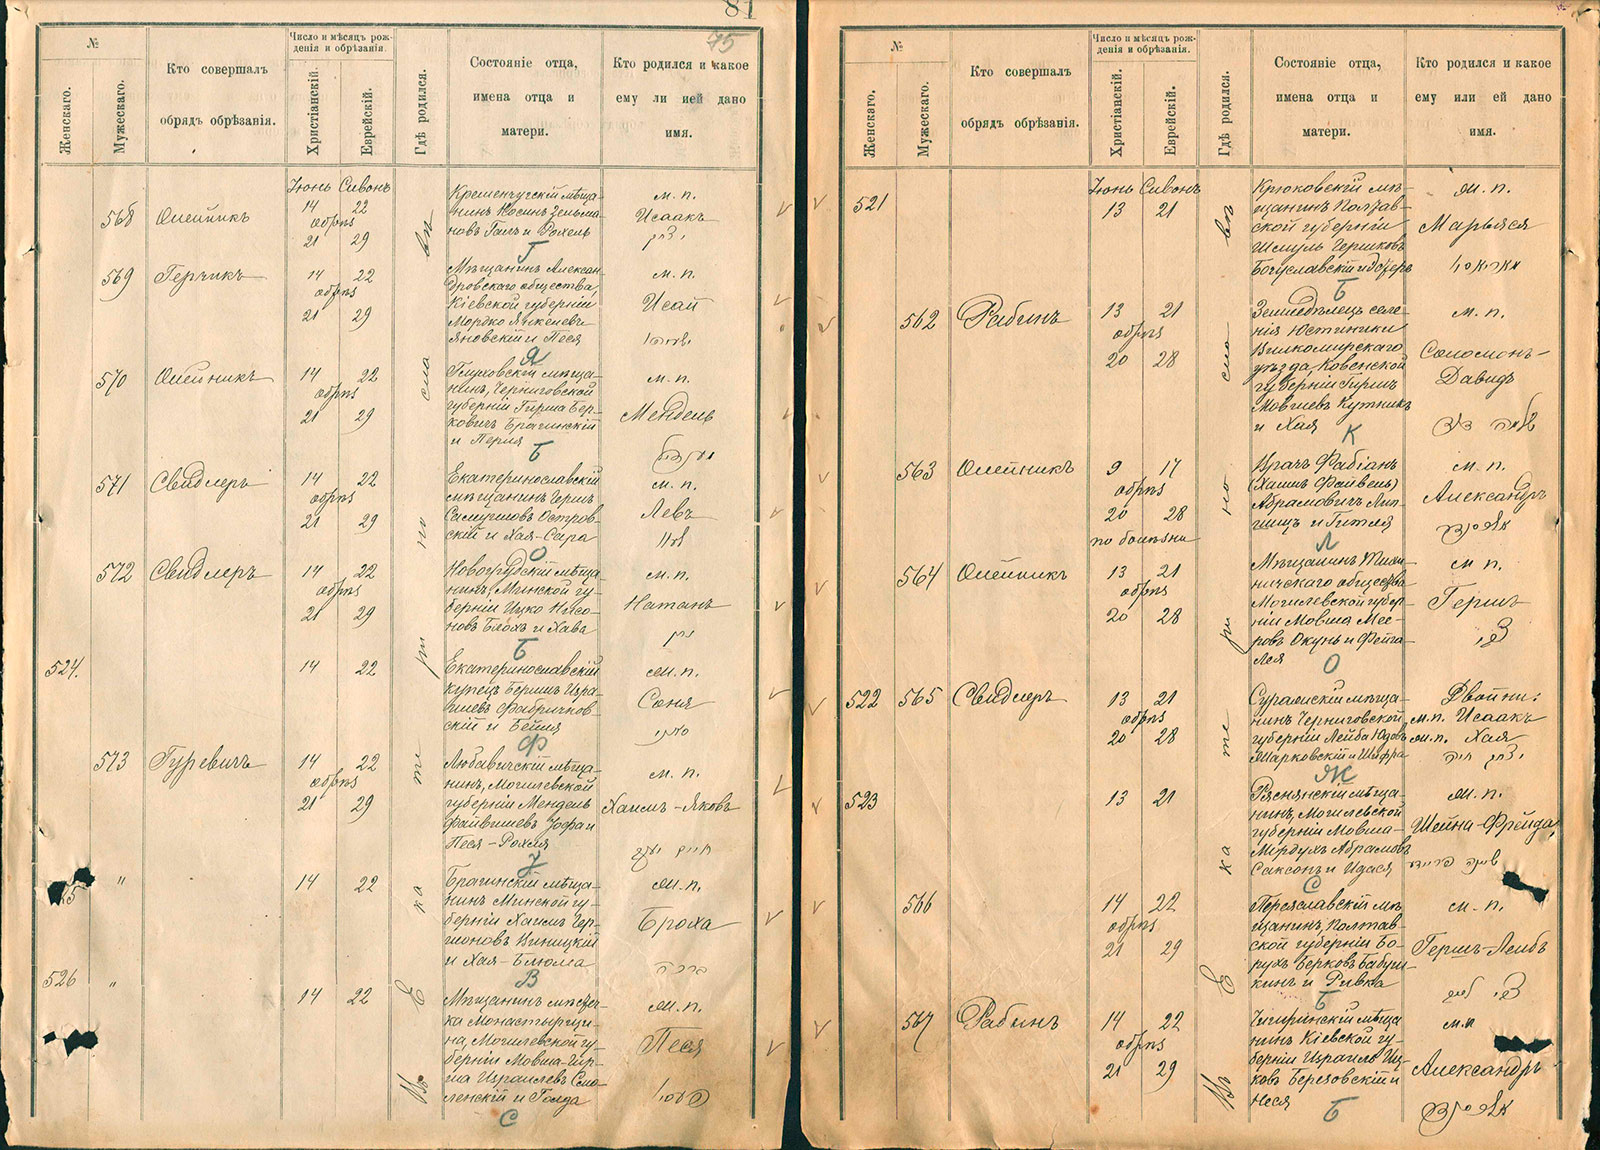 81
75
№
Женскаго.
Мужескаго.
Кто совершалъ
обрядъ обрѣзанія.
Число и мѣсяцъ рож-
денія и обрѣзанія.
Христіанскій.
Еврейскій.
Гдѣ родился.
Состояніе отца,
имена отца и
матери.
Кто родился и какое
ему ли ией дано
имя.
Іюнь Сивонъ
568 Олейникъ
14 22
обрѣз
21 29
Кременчугскій мѣща-
нинъ Іосинъ Зельма-
новъ Галъ и Рохель
Г
м. п.
Исаакъ
יצחק
569 Герчикъ
14 22
обрѣз
21 29
Мѣщанинъ Алексан-
дровскаго общества
Кіевской губерніи
Мордко Янкелевъ
Яновскій и Песя
Я
м. п.
Исай
570 Олейникъ
14 22
обрѣз
21 29
Глуховскій мѣща-
нинъ, Черниговской
губерніи Гирша Бер-
ковичъ Брагинскій
и Перля
Б
м. п.
Мендель
571 Свидлеръ
14 22
обрѣз
21 29
Екатеринославскій
мѣщанинъ Гершъ
Самуиловъ Остров-
скій и Хая-Сара
О
м. п.
Левъ
572 Свидлеръ
14 22
обрѣз
21 29
Новогрудскій мѣща-
нинъ, Минской гу-
берніи Ицко Нисо-
новъ Блохъ и Хава
Б
м. п.
Натанъ
נתן
524.
14 22
Екатеринославскій
купецъ Бершъ Изра-
илевъ Фабричнов-
скій и Бейля
Ф
ж. п.
Соня
573 Гуревичъ
14 22
обрѣз
21 29
Любавичскій мѣща-
нинъ, Могилевской
губерніи Мендель
Файвишевъ
Песя-Рохля
м. п.
Хаимъ-Яковъ
חיים יעקב
"
14 22
Брагинскій мѣща-
нинъ Минской гу-
берніи Хаимъ Гер-
шоновъ Виницкій
и Хая-Блюма
В
ж. п.
Броха
ברכה
526 "
14 22
Мѣщанинъ мѣстеч-
ка Монастырщи-
на, Могилевской гу-
берніи Мовша-Гир-
ша Израилевъ Смо-
ленскій и Голда
С
ж. п.
Песя
Въ Екатеринославѣ
№
Женскаго.
Мужескаго.
Кто совершалъ
обрядъ обрѣзанія.
Число и мѣсяцъ рож-
денія и обрѣзанія.
Христіанскій.
Еврейскій.
Гдѣ родился.
Состояніе отца,
имена отца и
матери.
Кто родился и какое
ему или ей дано
имя.
Іюнь Сивонъ
521
13 21
Крюковскій мѣ-
щанинъ Полтав-
ской губерніи
Шмуль Гершковъ
Богуславскій и
Б
ж. п.
Марьяся
562 Рабинъ
13 21
обрѣз
20 28
Земледѣлецъ селе-
нія Юстиники
Вилкомирскаго
уѣзда, Ковенской
губерніи Гиршъ
Мовшевъ Кутникъ
и Хая
К
м. п.
Соломонъ-
Давидъ
שלמה דוד
563 Олейникъ
9 17
обрѣз
20 28
по болѣзни
Врачъ Фабіанъ
(Хаимъ Файвель)
Абрамовичъ Лип-
шицъ и Гитля
Л
м. п.
Александръ
564 Олейникъ
13 21
обрѣз
20 28
ничскаго общества
Могилевской губер-
ніи Мовша Мее-
ровъ Окунь и Фейга-
Лея
О
м. п.
Гершъ
צבי
522 565 Свидлеръ
13 21
обрѣз
20 28
Суражскій мѣща-
нинъ Черниговской
губерніи Лейба Юдовъ
Жарковскій и Шифра
Ж
Двойни:
м. п. Исаакъ
ж. п. Хая
יצחק חיה
523
13 21
Ряснянскій мѣща-
нинъ, Могилевской
губерніи Мовша-
Мордухъ Абрамовъ
Саксонъ и Идася
С
ж. п.
Шейна-Фрейда
שיינה פריידע
566
14 22
обрѣз
21 29
Переяславскій мѣ-
щанинъ, Полтав-
ской губерніи Бо-
рухъ Берковъ Бабуш-
кинъ и Ривка
Б
м. п.
Гершъ-Лейбъ
צבי לייב
567 Рабинъ
14 22
обрѣз
21 29
Чигиринскій мѣща
нинъ Кіевской гу-
берніи Израиль Иц-
ковъ Березовскій и
Неся
Б
м. п
Александръ
Въ Екатеринославѣ